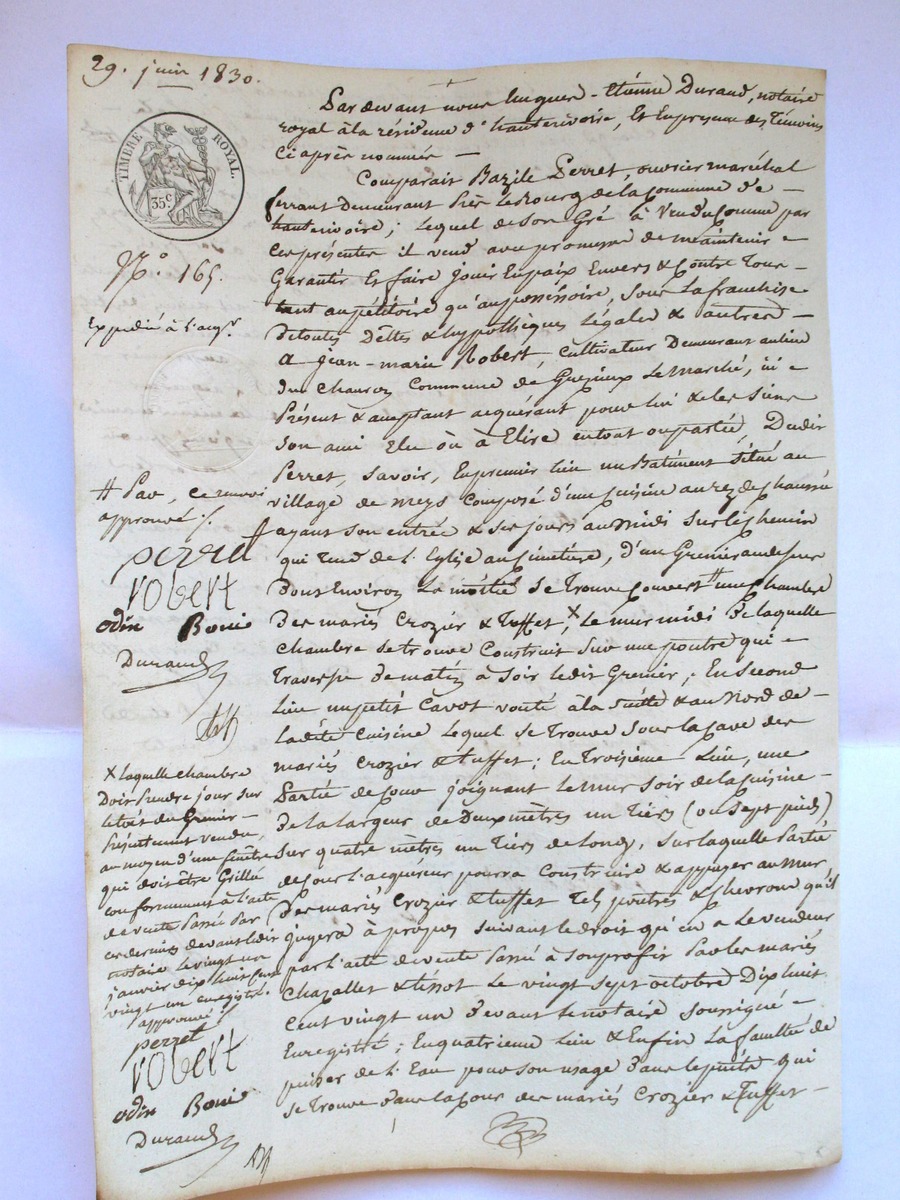 29. juin 1830.
TIMBRE ROYAL.
35c
N.o 165.
Expédié à l'acqr.
Pardevant nous hugues-Etienne Durand, notaire
royal à la résidence d'hauterivoire, et En presence des Témoins
ci après nommés —
Comparait Bazile Perret, ouvrier maréchal
ferrant Demeurant Près le Bourg de la commune d'e —
hauterivoire; lequel de son Gré à Vendu Comme par
ces présentes il vend avec promesse de maintenir =
Garantir Et faire jouir En paix Envers & Contre Tous —
tant au pétitoire qu'au possessoire, sous la franchise
de toutes Dêttes & hypothèques légales & autres —
a jean-marie Robert, Cultivateur Demeurant au lieu
du Chauron Commune de Grezieux Le Marché, ici =
Présent & acceptant acquérant pour lui & les siens
son ami Elu où à Elire en tout ou partie, Dudit
Perret, savoir, En premier lieu un Batiment situé au
village de meys Composé d'une cuisine au rez de chaussée
ayant son entrée & ses jours au midi sur le chemin
qui tend de l'Eglise au Cimetière, d'un Grenier au dessus
Dont Environ la moitié se trouve couvert # une chambre
Des mariés Crozier & Tuffet, x Le mur midi de laquelle
chambre se trouve Construit sur une poutre qui =
Traverse de matin à soir ledit Grenier; En second
lieu un petit Cavot vouté à la suitte & au Nord de —
ladite Cuisine lequel se Trouve sous la cave des
mariés Crozier & tuffet; En Troisième Lieu, une
Partie de cour joignant le mur soir de la cuisine —
De la largeur de Deux mètres un Tiers (ou sept pieds)
sur quatre mètres un Tiers de long, sur laquelle Partie
de cour l'acquéreur pourra Construire & appuyer au mur
Des mariés Crozier & tuffet Tels poutres & chevrons qu'il
jugera à propos suivant le droit qu'en a le vendeur
par l'acte de vente Passé à son profit Par les mariés
Chazallet & tissot le vingt sept octobre Dix huit
Cent vingt un Devant le notaire soussigné =
Enregistré; En quatrieme lieu & Enfin la faculté de
puiser de l'Eau pour son usage Dans le puits qui
se trouve Dans la cour des mariés Crozier & Tuffet —
# Par, ce renvoi
approuvé /.
perret
robert
odin Bonie
Durand
x laquelle chambre
Doit Prendre jour sur
le toit du Grenier —
Présentement vendu,
au moyen d'une fenêtre
qui doit être Grillée
conformement à l'acte
de vente Passé Par
ces derniers devant ledit
notaire le vingt un
janvier dix huit cent
vingt un enregistré.
approuvé /.
perret
robert
odin Bonie
Durand